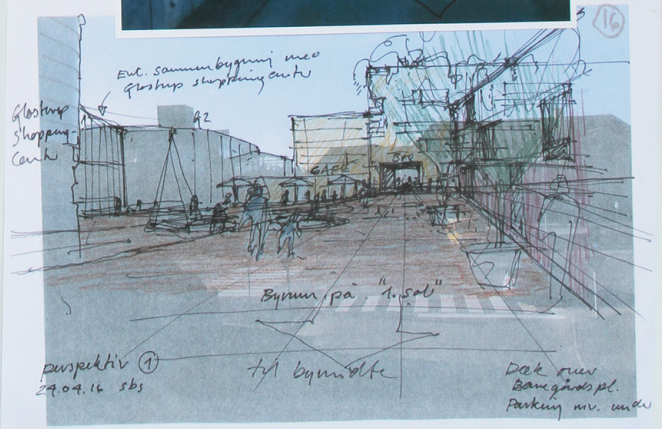 16
Evt. sammenbygning med
Glostrup shoppingcenter
Glostrup
Shopping-
Center
A2
CAFE
Byrum på "1. sal"
perspektiv 1
24.04.16 sbs
til bymidte
Dæk over
Banegårdspl.
Parkering niv. under